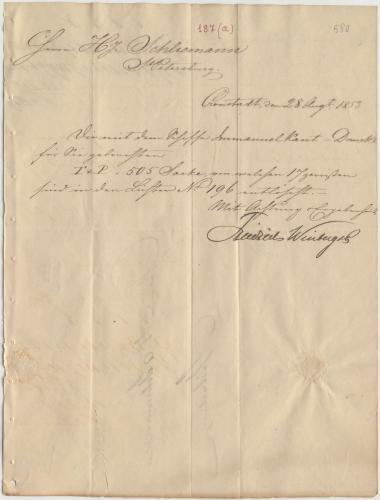 187 (a)
580
Herrn Hy Schliemann
St Petersburg.
Cronstadt, den 28 Augt 1853
Die mit dem Schiffe Immanuel Kant -
für Sie gebrachten
I & P. 505 Säcke, von welchen 17 gerissen
sind in den Lichter No 196 entlöscht.
Mit Achtung & Ergebenst
Friedrich